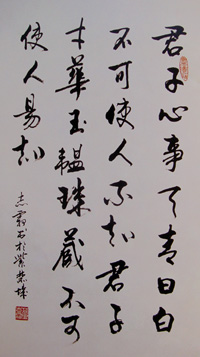 君子心事天青日白
不可使人不知君子
才華玉韞珠藏不可
使人易知
书於紫禁城